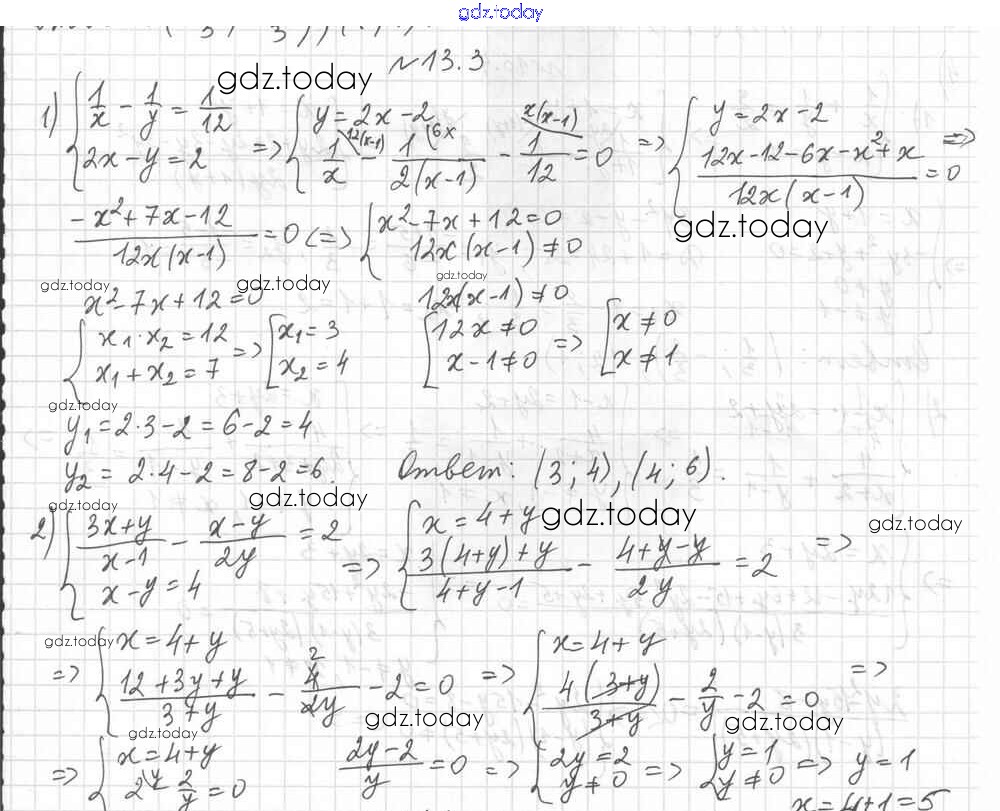 gdz.today
N 13.3
gdz.today
1) { 1/x - 1/y = 1/12 ; 2x - y = 2 => { y = 2x - 2 ; 1/x \12(x-1) - 1/(2(x-1)) \6x - 1/12 \x(x-1) = 0 => { y = 2x - 2 ; (12x - 12 - 6x - x² + x)/(12x(x-1)) = 0 =>
(-x² + 7x - 12)/(12x(x-1)) = 0 <=> { x² - 7x + 12 = 0 ; 12x(x-1) ≠ 0
gdz.today
gdz.today
gdz.today gdz.today
x² - 7x + 12 = 0 12x(x-1) ≠ 0
{ x₁·x₂ = 12 ; x₁ + x₂ = 7 => [ x₁ = 3 ; x₂ = 4 [ 12x ≠ 0 ; x - 1 ≠ 0 => [ x ≠ 0 ; x ≠ 1
gdz.today
y₁ = 2·3 - 2 = 6 - 2 = 4
y₂ = 2·4 - 2 = 8 - 2 = 6. Ответ: (3; 4), (4; 6).
gdz.today gdz.today gdz.today gdz.today
2) { (3x+y)/(x-1) - (x-y)/(2y) = 2 ; x - y = 4 => { x = 4 + y ; (3(4+y)+y)/(4+y-1) - (4+y-y)/(2y) = 2 =>
gdz.today
=> { x = 4 + y ; (12+3y+y)/(3+y) - 4/(2y) \2 - 2 = 0 => { x = 4 + y ; 4(3+y)/(3+y) - 2/y - 2 = 0 =>
gdz.today gdz.today gdz.today
=> { x = 4 + y ; 2 \y - 2/y = 0 (2y-2)/y = 0 => { 2y = 2 ; y ≠ 0 => { y = 1 ; y ≠ 0 => y = 1
x = 4 + 1 = 5